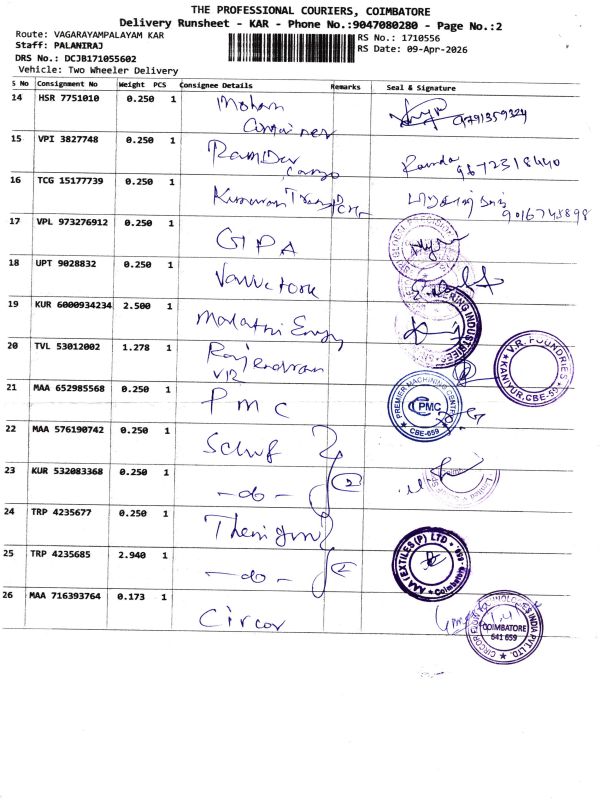 THE PROFESSIONAL COURIERS, COIMBATORE
Delivery Runsheet - KAR - Phone No.:9047080280 - Page No.:2
Route: VAGARAYAMPALAYAM KAR
RS No.: 1710556
Staff: PALANIRAJ
RS Date: 09-Apr-2026
DRS No.: DCJB171055602
Vehicle: Two Wheeler Delivery
S No Consignment No Weight PCS Consignee Details Remarks Seal & Signature
14 HSR 7751010 0.250 1 Mohan
Container
15 VPI 3827748 0.250 1 RamDev
Cargo
16 TCG 15177739 0.250 1
9016745898
17 VPL 973276912 0.250 1 GIPA
18 UPT 9028832 0.250 1
19 KUR 6000934234 2.500 1 Malathi Engg
ERING INDUSTRIES
20 TVL 53012002 1.278 1 Rajendran
VR
V.R. FOUNDRIES
KANIYUR, CBE-59
21 MAA 652985568 0.250 1 PMC
PREMIER MACHINING CENTER
PMC
CBE-659
22 MAA 576190742 0.250 1
23 KUR 532083368 0.250 1 -do- 2
24 TRP 4235677 0.250 1
25 TRP 4235685 2.940 1 -do- 2
TEXTILES (P) LTD
26 MAA 716393764 0.173 1 Circor
COIMBATORE
641 659